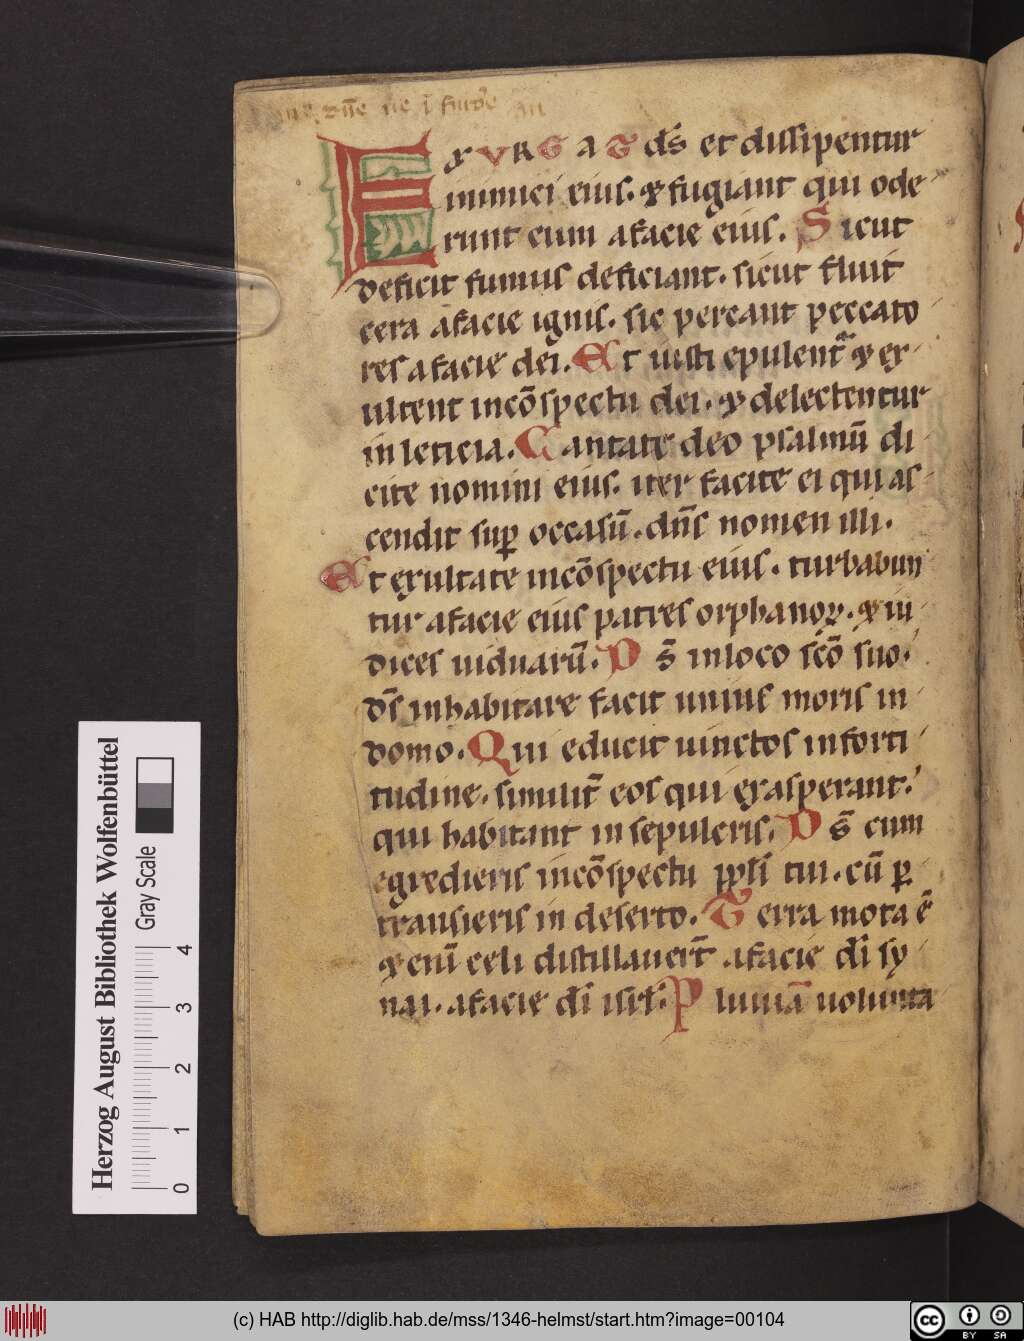 EXVRGAT ds̄ et dissipentur
inimici eius. ⁊ fugiant qui ode
runt eum a facie eius. Sicut
deficit fumus deficiant. sicut fluit
cera a facie ignis. sic pereant peccato
res a facie dei. Et iusti epulent᷑ ⁊ ex
ultent incōspectu dei. ⁊ delectentur
in leticia. Cantate deo psalmū di
cite nomini eius. iter facite ei qui as
cendit suꝑ occasū. dn̄s nomen illi.
Et exultate incōspectu eius. turbabun
tur a facie eius patres orphanoꝝ. ⁊ iu
dices uiduarū. Ds̄ in loco scō suo.
ds̄ inhabitare facit unius moris in
domo. Qui educit uinctos in forti
tudine. similit᷑ eos qui exasperant.
qui habitant in sepulcris. Ds̄ cum
egredieris incōspectu ppl̄i tui. cū ꝑ
transieris in deserto. Terra mota ē
⁊enī celi distillauer̄t a facie dī sy
nai. a facie dī isrl̄. Pluuiā uolunta
Herzog August Bibliothek Wolfenbüttel
Gray Scale
0 1 2 3 4
(c) HAB http://diglib.hab.de/mss/1346-helmst/start.htm?image=00104
cc BY SA